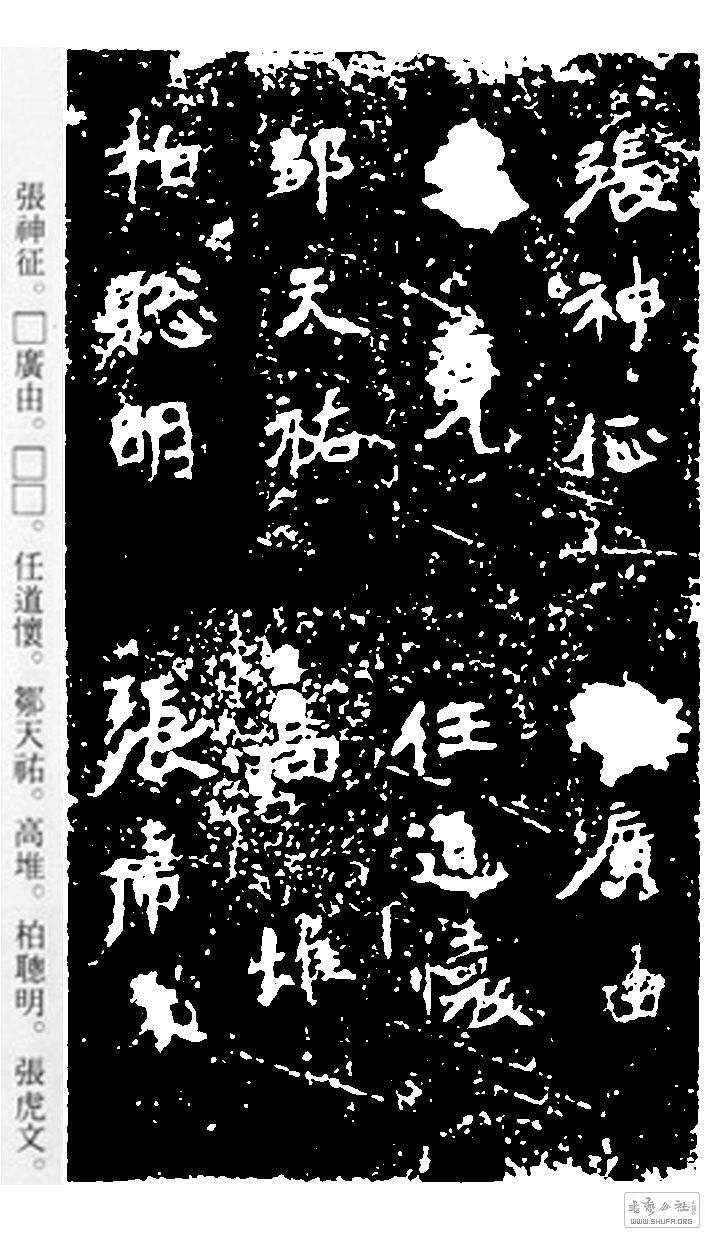 張神征
廣由
任道懷
鄒天祐
高堆
柏聰明
張虎
張神征。□廣由。□□。任道懷。鄒天祐。高堆。柏聰明。張虎文。
書藝公社
WWW.SHUFA.ORG